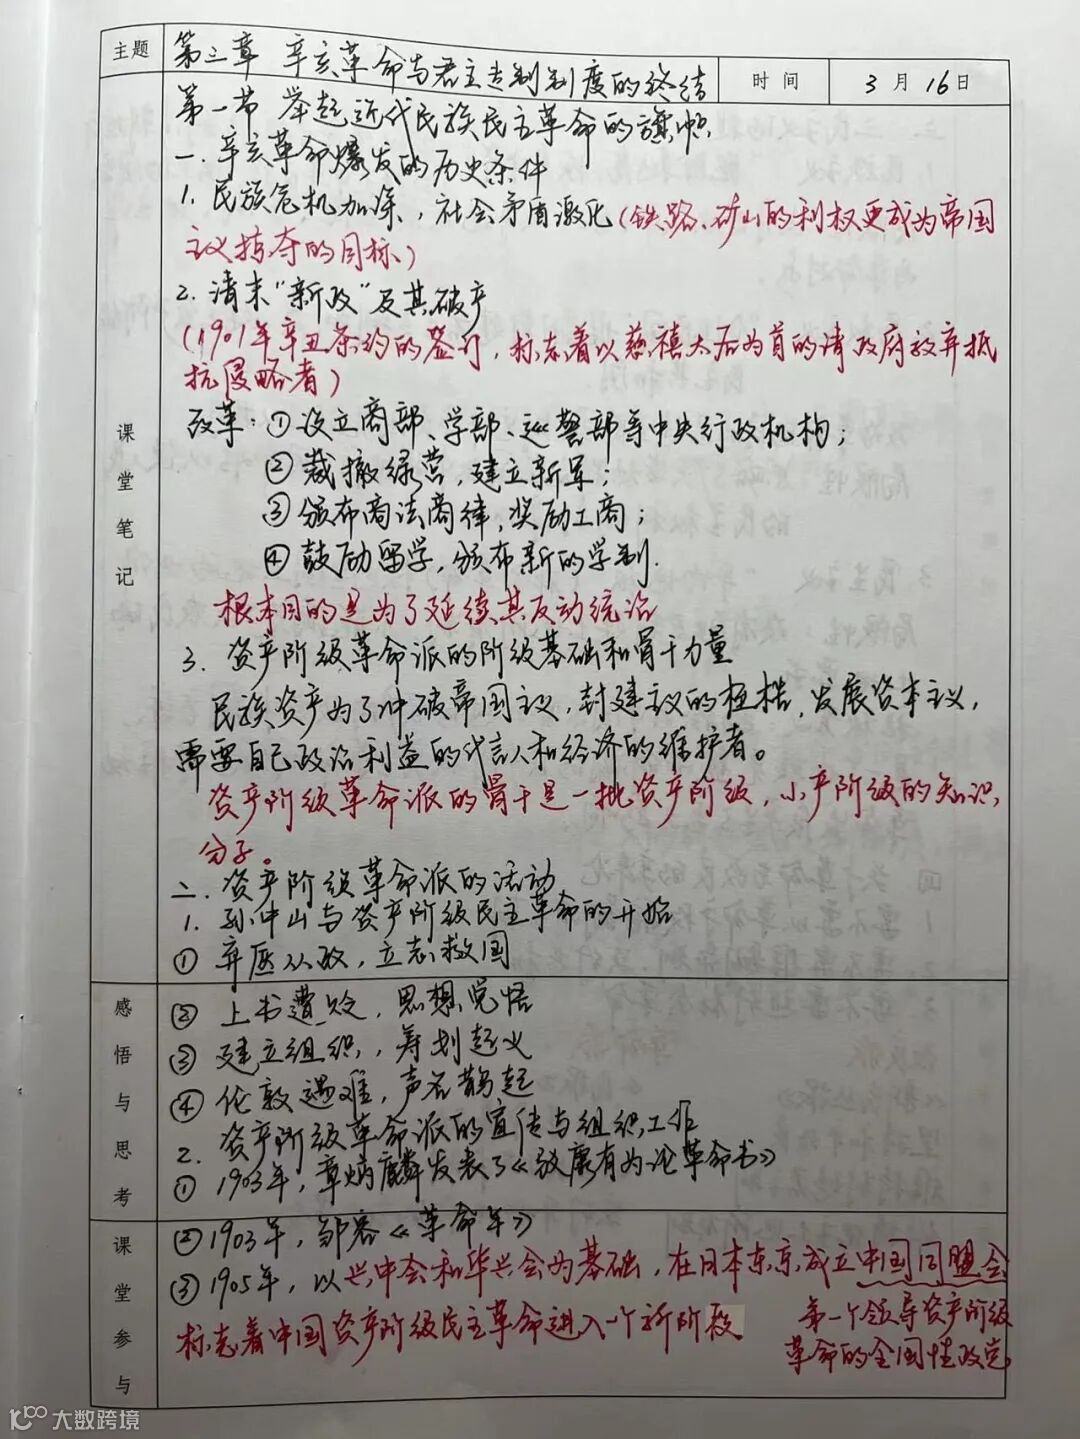 主题 第三章 辛亥革命与君主专制制度的终结 时间 3月16日
第一节 举起近代民族民主革命的旗帜
一、辛亥革命爆发的历史条件
1. 民族危机加深，社会矛盾激化（铁路、矿山的利权更成为帝国
主议掠夺的目标）
2. 清末“新政”及其破产
（1901年辛丑条约的签订，标志着以慈禧太后为首的清政府放弃抵
抗侵略者）
改革：①设立商部、学部、巡警部等中央行政机构；
②裁撤绿营，建立新军；
③颁布商法商律，奖励工商；
④鼓励留学，颁布新的学制.
根本目的是为了延续其反动统治
3. 资产阶级革命派的阶级基础和骨干力量
民族资产为了冲破帝国主议，封建主议的桎梏，发展资本主议，
需要自己政治利益的代言人和经济的维护者。
资产阶级革命派的骨干是一批资产阶级，小产阶级的知识
分子。
二、资产阶级革命派的活动
1. 孙中山与资产阶级民主革命的开始
①弃医从政，立志救国
课堂笔记
②上书遭败，思想觉悟
③建立组织，筹划起义
④伦敦遇难，声名鹊起
2. 资产阶级革命派的宣传与组织工作
①1903年，章炳麟发表了《驳康有为论革命书》
感悟与思考
②1903年，邹容《革命军》
③1905年，以兴中会和华兴会为基础，在日本东京成立中国同盟会
标志着中国资产阶级民主革命进入一个新阶段
第一个领导资产阶级
革命的全国性政党
课堂参与
大数跨境